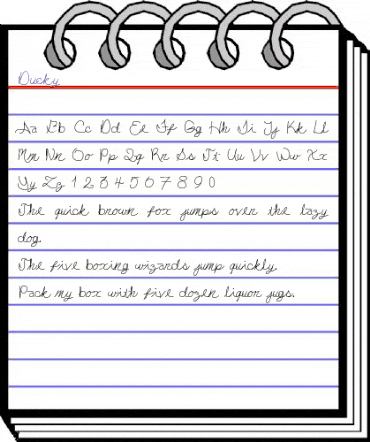 Ducky
Aa Bb Cc Dd Ee Ff Gg Hh Ii Jj Kk Ll
Mm Nn Oo Pp Qq Rr Ss Tt Uu Vv Ww Xx
Yy Zz 1 2 3 4 5 6 7 8 9 0
The quick brown fox jumps over the lazy
dog.
The five boxing wizards jump quickly.
Pack my box with five dozen liquor jugs.